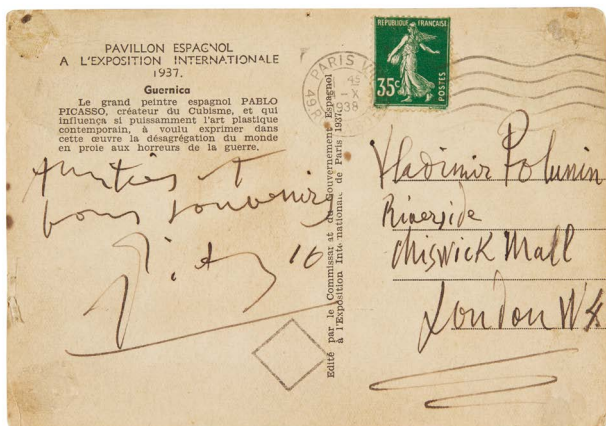 PAVILLON ESPAGNOL
A L'EXPOSITION INTERNATIONALE
1937.
Guernica
Le grand peintre espagnol PABLO
PICASSO, créateur du Cubisme, et qui
influença si puissamment l'art plastique
contemporain, à voulu exprimer dans
cette œuvre la désagrégation du monde
en proie aux horreurs de la guerre.
Amitiés et
bons souvenirs
Edité par le Commissariat du Gouvernement Espagnol
à l'Exposition Internationale de Paris 1937.
REPUBLIQUE FRANÇAISE
35c
POSTES
PARIS
X
1938
Vladimir Polunin
Riverside
Chiswick Mall
London W4